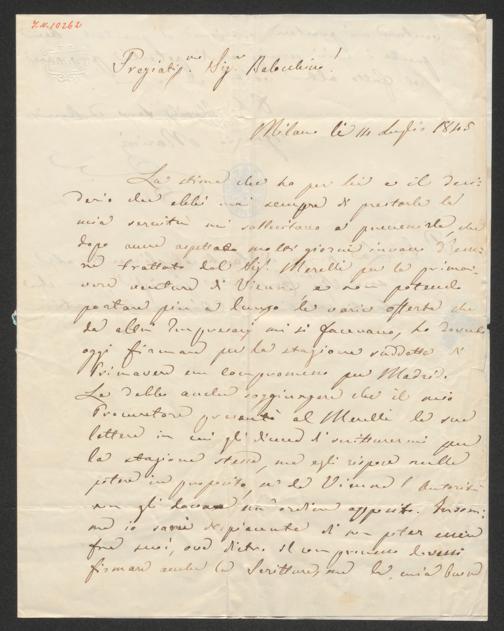 I.N. 10262
Pregiatis.mo Sig.r Balocchino!
Milano li 14 Luglio 1845
La stima che ho per lei e il desi-
derio che ebbi mai sempre di prestarle la
mia servitù mi sollecitano a prevenirla, che
dopo avere aspettato molti giorni invano d'esse-
re trattato dal Sig. Merelli per la prima-
vera ventura di Vienna e non potendo
portare più a lungo le varie offerte che
da altri Impresarj mi si facevano, ho dovuto
oggi firmare per la stagione suddetta di
Primavera un compromesso per Madrid.
La debbo anche soggiungere che il mio
Procuratore presentò al Merelli la sua
lettera in cui gli diceva di scritturarmi per
la stagione stessa, ma egli rispose nulla
potere in proposito, se da Vienna l'Autorità
non gli dava un ordine apposito.
me io sarei dispiacente di non poter
fra suoi, ove dietro il compromesso dovessi
firmare anche la Scrittura, ma la mia buona